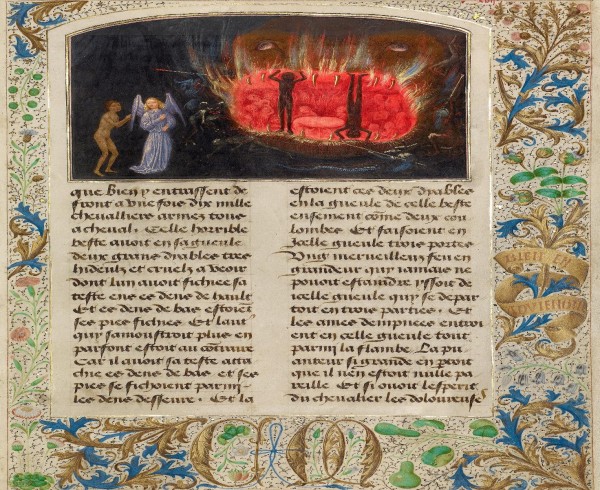 que bien y entraissent de
front a une fois dix mille
chevalliers armez tous
a cheval. Celle horrible
beste avoit en sa gueule
deux grans dyables tres
hideulz et cruelz a veoir
dont lun avoit fichee sa
teste en ces dens de hault
Et ces dens de bas estoient
ses pies fichies. Et laut
quy samoustroit plus en
parfont estoit au contraire
Car il avoit sa teste atta
chie es dens de bas et ses
pies se fichoient parmi
les dens desseure. Et la
estoient ces deux dyables
en la gueule de celle beste
ensement come deux cou
lombes. Et faisoient en
Icelle gueule trois portes
Ung merveilleux feu en
grandeur quy jamais ne
pouoit estaindre yssoit de
icelle gueule quy se depar
toit en trois parties. Et
les ames dempnees entroi
ent en celle gueule tout
parmi la flambe. La pu
anteur si grande en yssoit
que il nen estoit nulle pa
reille. Et si ouoit lesperit
du chevalier les doloreuses